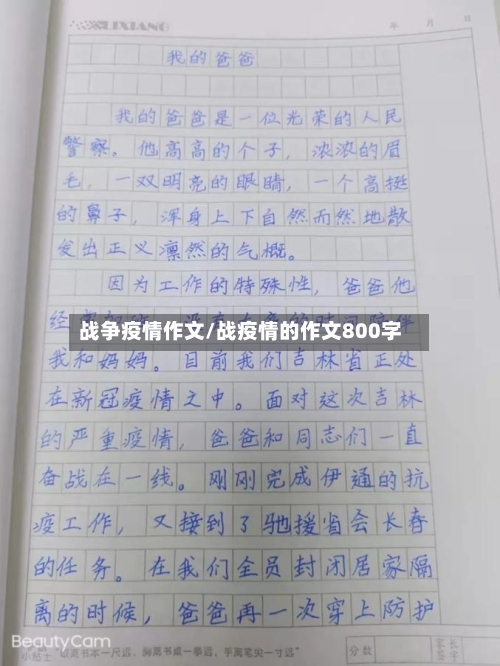 LIXIANG
年 月 日
我的爸爸
我的爸爸是一位光荣的人民
警察。他高高的个子，浓浓的眉
毛，一双明亮的眼睛，一个高挺
的鼻子，浑身上下自然而然地散
发出正义凛然的气概。
因为工作的特殊性，爸爸他
经
伴
战争疫情作文/战疫情的作文800字
我和妈妈。目前我们吉林省正处
在新冠疫情之中。面对这次吉林
的严重疫情，爸爸和同志们一直
奋战在一线。刚刚完成伊通的抗
疫工作，又接到了驰援省会长春
的任务。在我们全员封闭居家隔
离的时候，爸爸再一次穿上防护
小贴士 眼离书本一尺远，胸离书桌一拳远，手离笔尖一寸远
分数
家长签字
BeautyCam